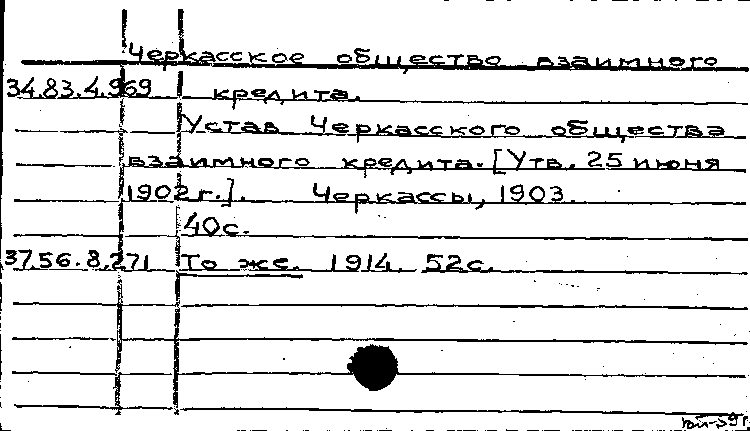 Черкасское общество взаимного
34.83.4.969 кредита.
Устав Черкасского общества
взаимного кредита. [Утв. 25 июня
1902 г.]. Черкассы, 1903.
40с.
37.56.8.271 То же. 1914. 52с.